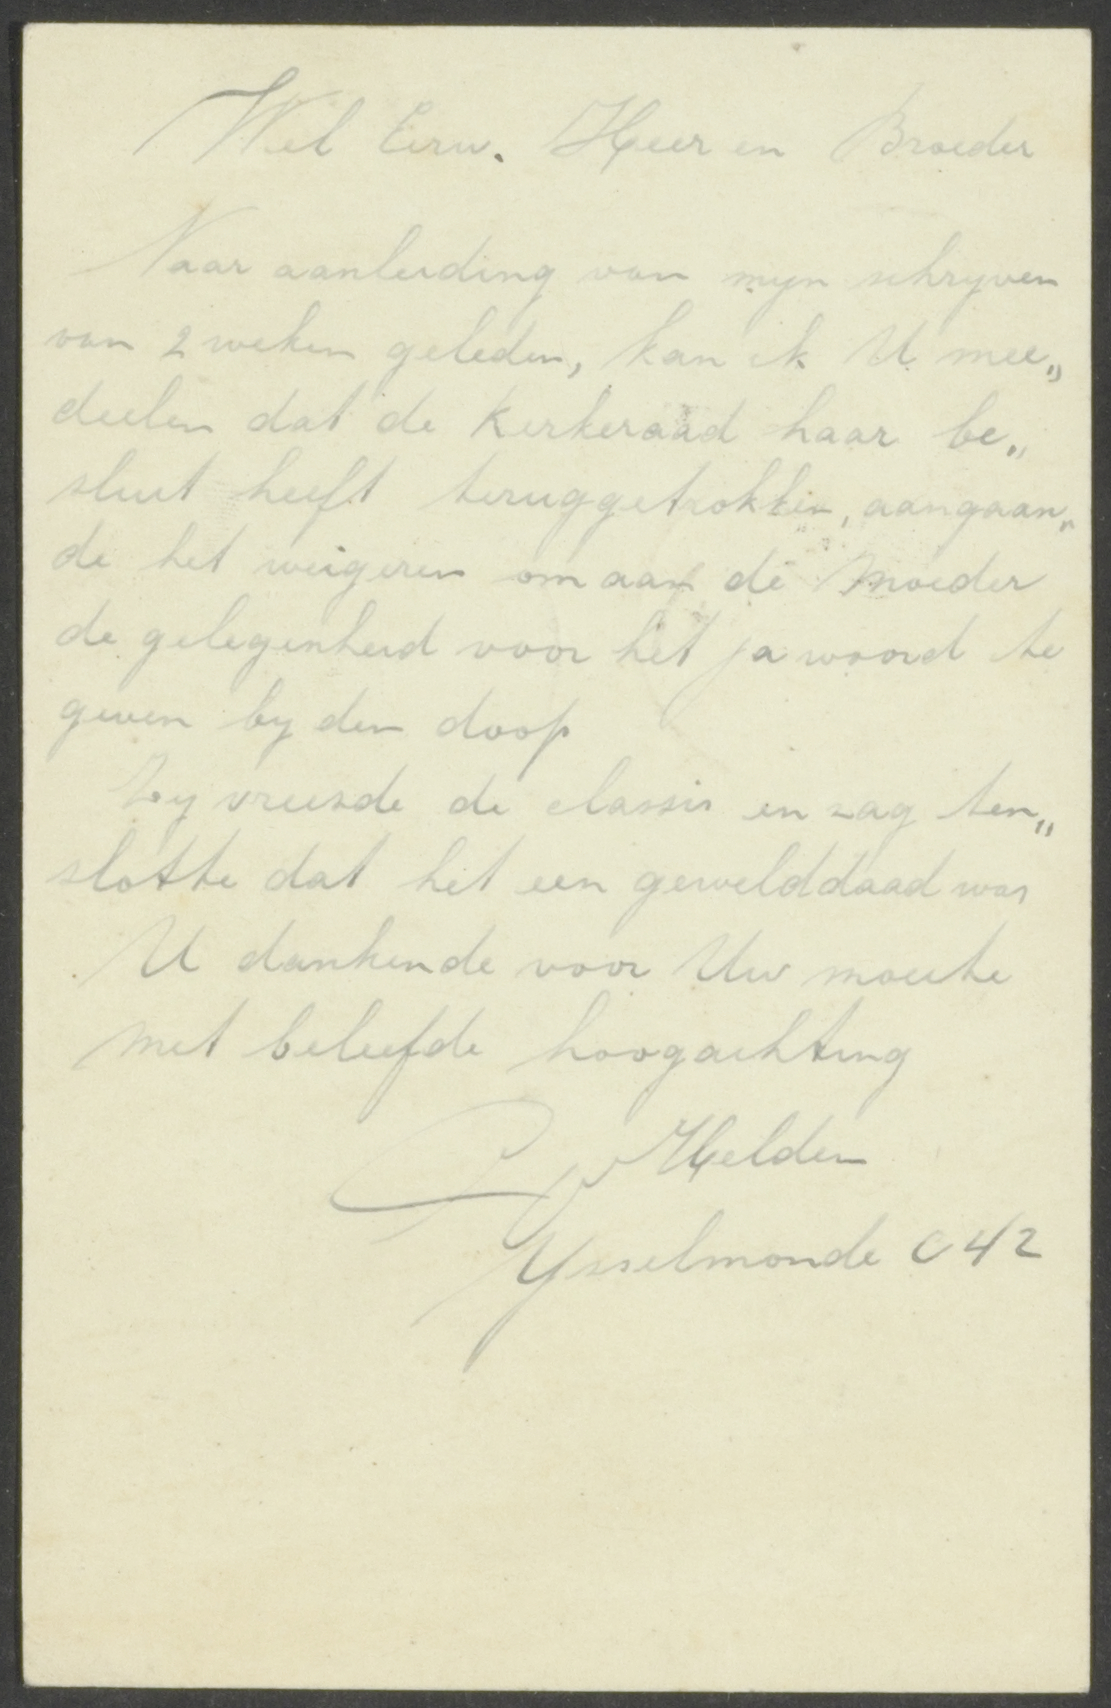 Wel Eerw. Heer en Broeder
Naar aanleiding van mijn schrijven
van 2 weken geleden, kan ik U mee„
deelen dat de Kerkeraad haar be„
sluit heeft teruggetrokken, aangaan„
de het weigeren om aan de Moeder
de gelegenheid voor het ja woord te
geven bij den doop
Zij vreesde de classis en zag ten„
slotte dat het een gewelddaad was
U dankende voor Uw moeite
met beleefde hoogachting
v Helden
IJsselmonde C 42